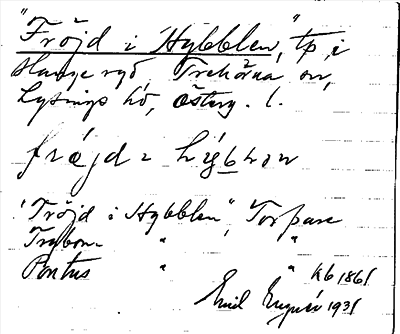 "Fröjd i Hybblen", tp, i
Stavye ryd, Trehörna sn,
Lysings hd, Österg. l.
fröjd i hýbbən
"Fröjd i Hybblen", Torpare
Trybom " "
Pontus " " kb 1861
Emil 1931